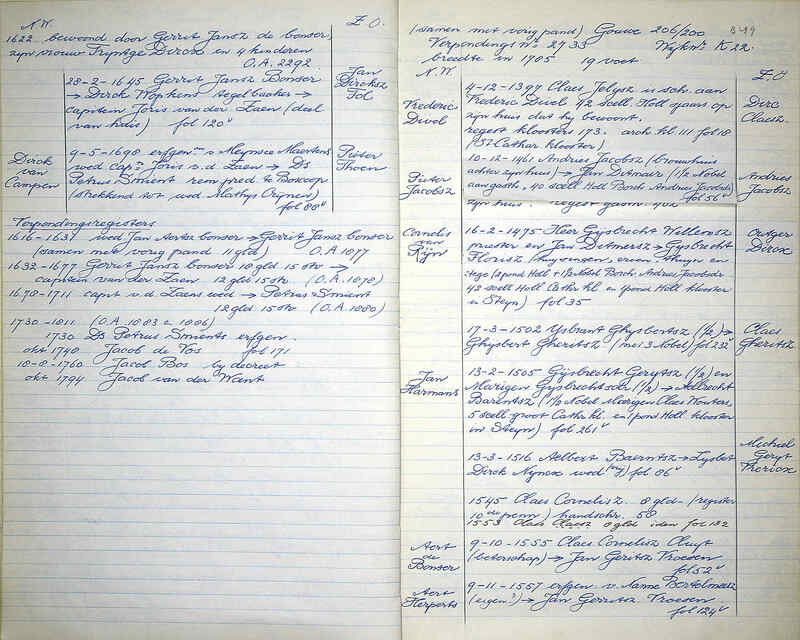 N.W. Z.O.
1622 bewoond door Gerrit Jansz de bonser
zijn vrouw Tryntge Dircx en 4 kinderen
O.A. 2292.
28-2-1645 Gerrit Jansz Bonser
→ Dirck Wopkens segelbacker →
capitein Joris van der Zaen (deel
van huis) fol 120v
Jan
Dircksz
Tol
Dirck
van
Campen
9-5-1698 erfgen. v Meynsie Maertens
wed capn Joris v.d. Zaen → Ds
Petrus Sment rem. pred. te Boscoop
(strekkend tot wed Mathys Crynen)
fol 88v
Pieter
Thoen
Verpondingsregisters
1616-1631 wed Jan Aertsz bonser → Gerrit Jansz bonser
(samen met vorig pand 11 gld) O.A. 1077
1632-1677 Gerrit Jansz bonser 18 gld 15 str →
captein van der Zaen 12 gld 15 str (O.A. 1078)
1678-1711 capt v.d. Zaens wed → Petrus Sment
12 gld 15 str (O.A. 1080)
1730-1811 (O.A. 1083 e 1086)
1730 Ds Petrus Sments erfgen.
okt 1740 Jacob de Vos fol 171
18-8-1760 Jacob Bos by decreet
okt 1794 Jacob van der Want
(samen met vorig pand) Gouwe 206/200 B-99
Verpondings No 2733 Wijkno K 22.
breedte in 1785 19 voet
N.W. Z.O
Vrederic
Duvel
4-12-1397 Claes Jolysz is sch. aan
Vrederic Duvel 42 scell Holl sjaars op
zijn huis dat hij bewoont.
regest kloosters 173. arch kl. 111 fol 18
(St Cathar klooster)
Dirc
Claesz.
Pieter
Jacobsz
10-12-1461 Andries Jacobsz (brouwhuis
achter zijn huis) → Jan Ditmaer (1/2 Nobel
aan gasth, 40 scell Holl Borch Andries Jacobsdr)
zijn huis. regest gasth. fol 56v
Andries
Jacobsz
Cornelis
van
Rijn
16-2-1475 Heer Gysbrecht Willemsz
priester en Jan Ditmersz → Gysbrecht
Florisz (huysingen, erven, thuyn en
stege (2 pond Holl + 1/2 Nobel Borch Andries Jacobsdr
42 scell Holl Cath kl en 1 pond Holl klooster
in Steyn) fol 35
Outger
Dircx
17-3-1502 Ysbrant Ghysbertsz (1/2) →
Ghysbert Gherritsz (met 3 Nobel) fol 232v
Claes
Gheritsz
Jan
Harmans
13-2-1505 Gijsbrecht Gerytsz (1/2) en
Marigen Gysbrechtsdr (1/2) → Aelbrecht
Barentsz (1 1/2 Nobel Marigen Claes Wouters,
5 scell groot Cath kl. en 1 pond Holl klooster
in Steyn) fol 261v
13-3-1516 Aelbert Baerntsz → Lysbet
Dirck Nynex wed fol 86v
Michiel
Geryt
1545 Claes Cornelisz. 8 gld - (register
10de penn) handschr. 58
1553 Claes Claesz 8 gld idem fol 132
Aert
de
Bonser
9-10-1555 Claes Cornelisz Cluyt
(beterschap) → Jan Geritsz Vroesen
fol 52v
Aert
Herperts
9-11-1557 erfgen. v. Nanne Bertelmeesz
(eigen) → Jan Gerritsz Vroesen
fol 124v